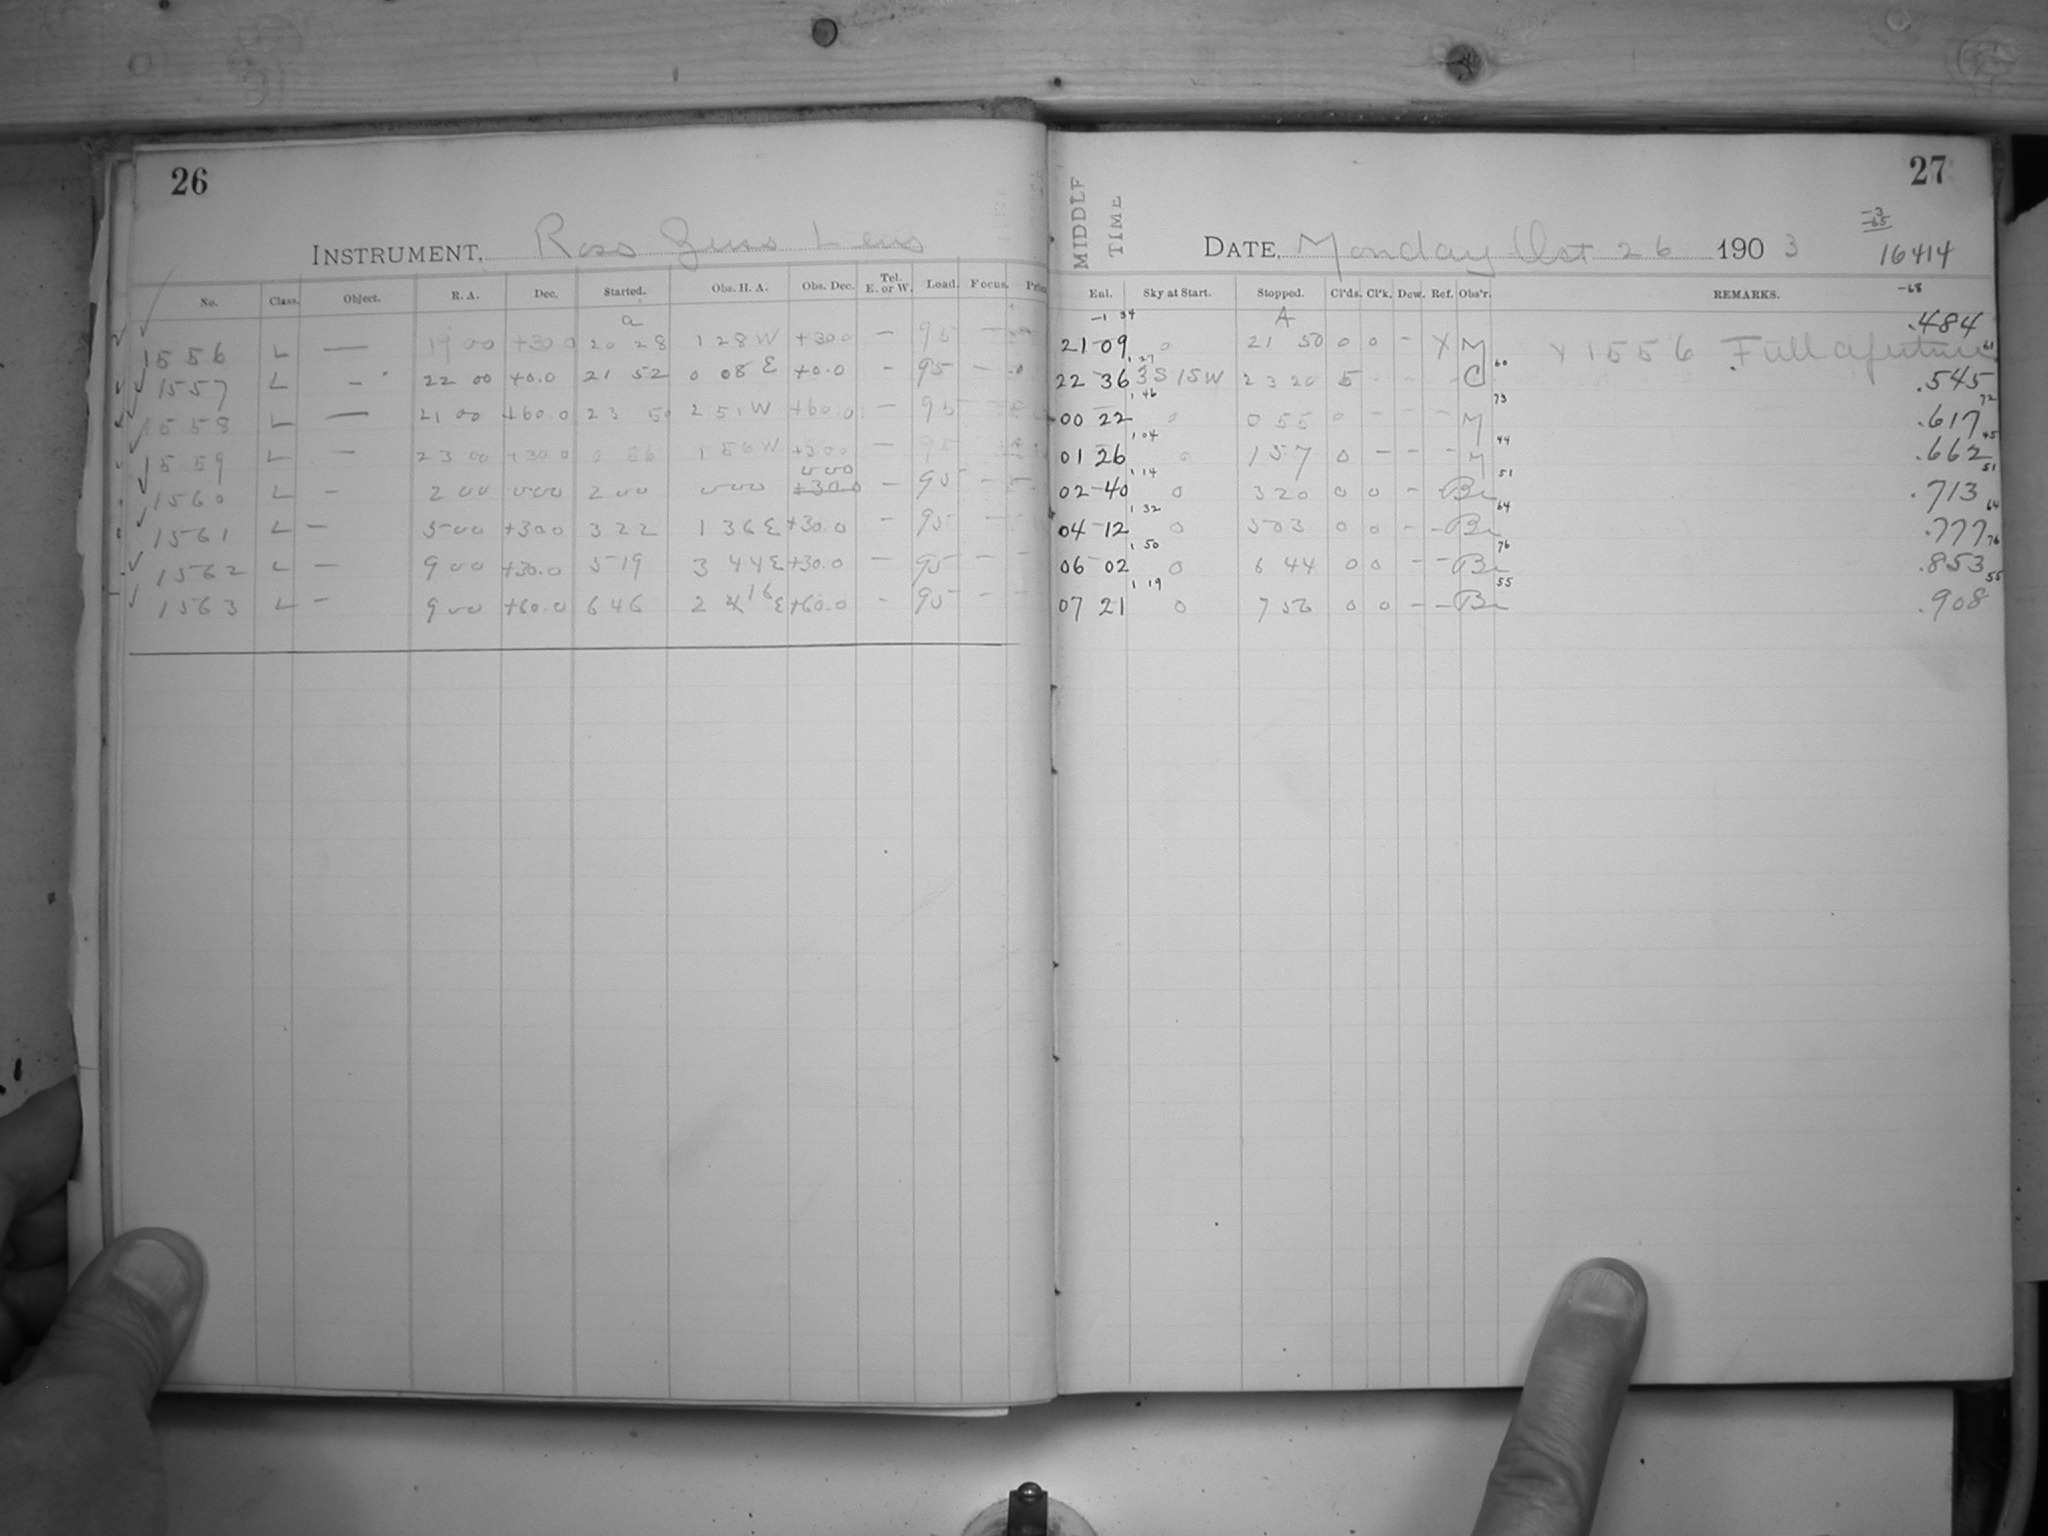 26
INSTRUMENT, Ross Zeiss Lens
No. Class. Object. R. A. Dec. Started. Obs. H. A. Obs. Dec. Tel. E. or W. Load. Focus.
a
1556 L — 19 00 +30 0 20 28 1 28 W +30 0 — 95 —
1557 L — 22 00 +0.0 21 52 0 08 E +0.0 — 95 —
1558 L — 21 00 +60.0 23 50 2 51 W +60.0 — 95 —
1559 L — 23 00 +30.0 0 56 1 56 W +30.0 — 95
000
1560 L — 2 00 000 2 00 000 +30.0 — 95 —
1561 L — 5 00 +30 0 3 22 1 36 E +30.0 — 95 —
1562 L — 9 00 +30.0 5 19 3 44 E +30.0 — 95 — —
1563 L — 9 00 +60.0 6 46 2 16 E +60.0 — 95 — —
27
MIDDLE TIME
DATE, Monday Oct 26 1903
-3
-65
16414
Enl. Sky at Start. Stopped. Cl'ds. Cl'k. Dew. Ref. Obs'r. REMARKS.
-68
-1 34 A
21 09 0 21 50 0 0 - X M X 1556 Full aperture .484
1 27 60 61
22 36 3S 1SW 23 20 5 - - - C .545
1 46 73 72
00 22 0 0 55 0 - - - M .617
1 04 44 45
01 26 0 1 57 0 - - - M .662
1 14 51 51
02 40 0 3 20 0 0 - - Br .713
1 32 64 64
04 12 0 5 03 0 0 - - Br .777
1 50 76 76
06 02 0 6 44 0 0 - - Br .853
1 19 55 55
07 21 0 7 56 0 0 - - Br .908